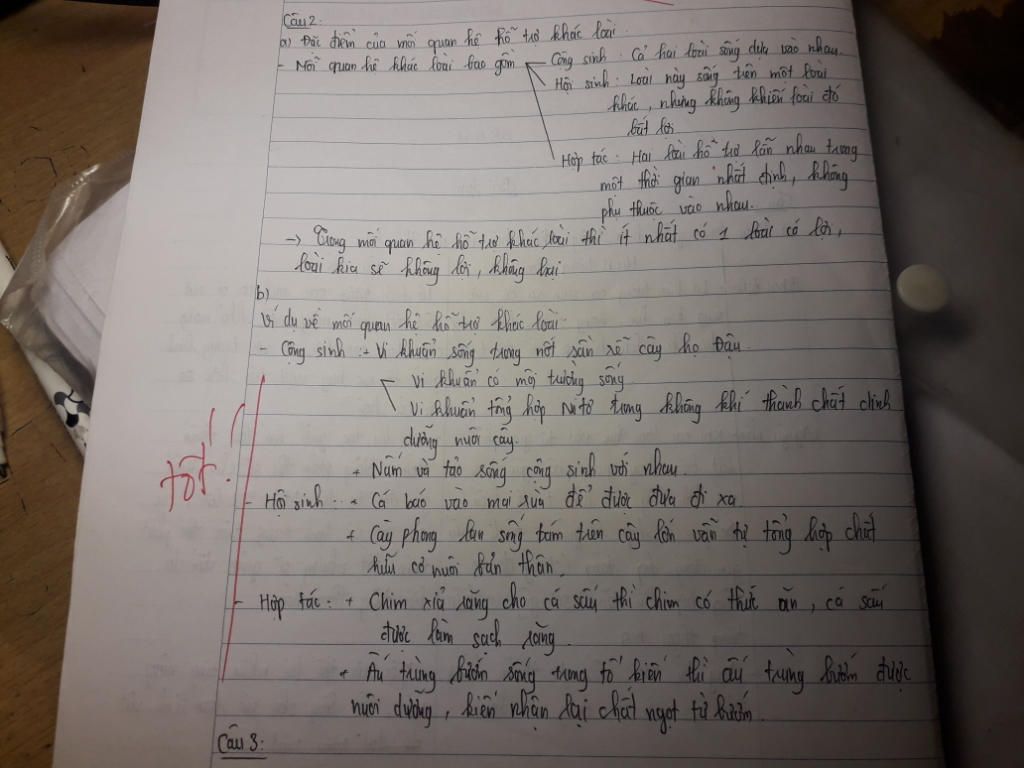 Câu 2:
a) Đặc điểm của mối quan hệ hỗ trợ khác loài.
- Mối quan hệ khác loài bao gồm Cộng sinh: Cả hai loài sống dựa vào nhau.
Hội sinh: Loài này sống trên một loài
khác, nhưng không khiến loài đó
bất lợi
Hợp tác: Hai loài hỗ trợ lẫn nhau trong
một thời gian nhất định, không
phụ thuộc vào nhau.
-> Trong mối quan hệ hỗ trợ khác loài thì ít nhất có 1 loài có lợi,
loài kia sẽ không lợi, không hại
b)
Ví dụ về mối quan hệ hỗ trợ khác loài
- Cộng sinh: + Vi khuẩn sống trong nốt sần rễ cây họ Đậu.
Vi khuẩn có môi trường sống
Vi khuẩn tổng hợp Nitơ trong không khí thành chất dinh
dưỡng nuôi cây.
+ Nấm và tảo sống cộng sinh với nhau
tốt!!
- Hội sinh: + Cá báo vào mai rùa để được đưa đi xa
+ Cây phong lan sống bám trên cây lớn vẫn tự tổng hợp chất
hữu cơ nuôi bản thân.
- Hợp tác: + Chim xỉa răng cho cá sấu thì chim có thức ăn, cá sấu
được làm sạch răng.
+ Ấu trùng bướm sống trong tổ kiến thì ấu trùng bướm được
nuôi dưỡng, kiến nhận lại chất ngọt từ bướm.
Câu 3: